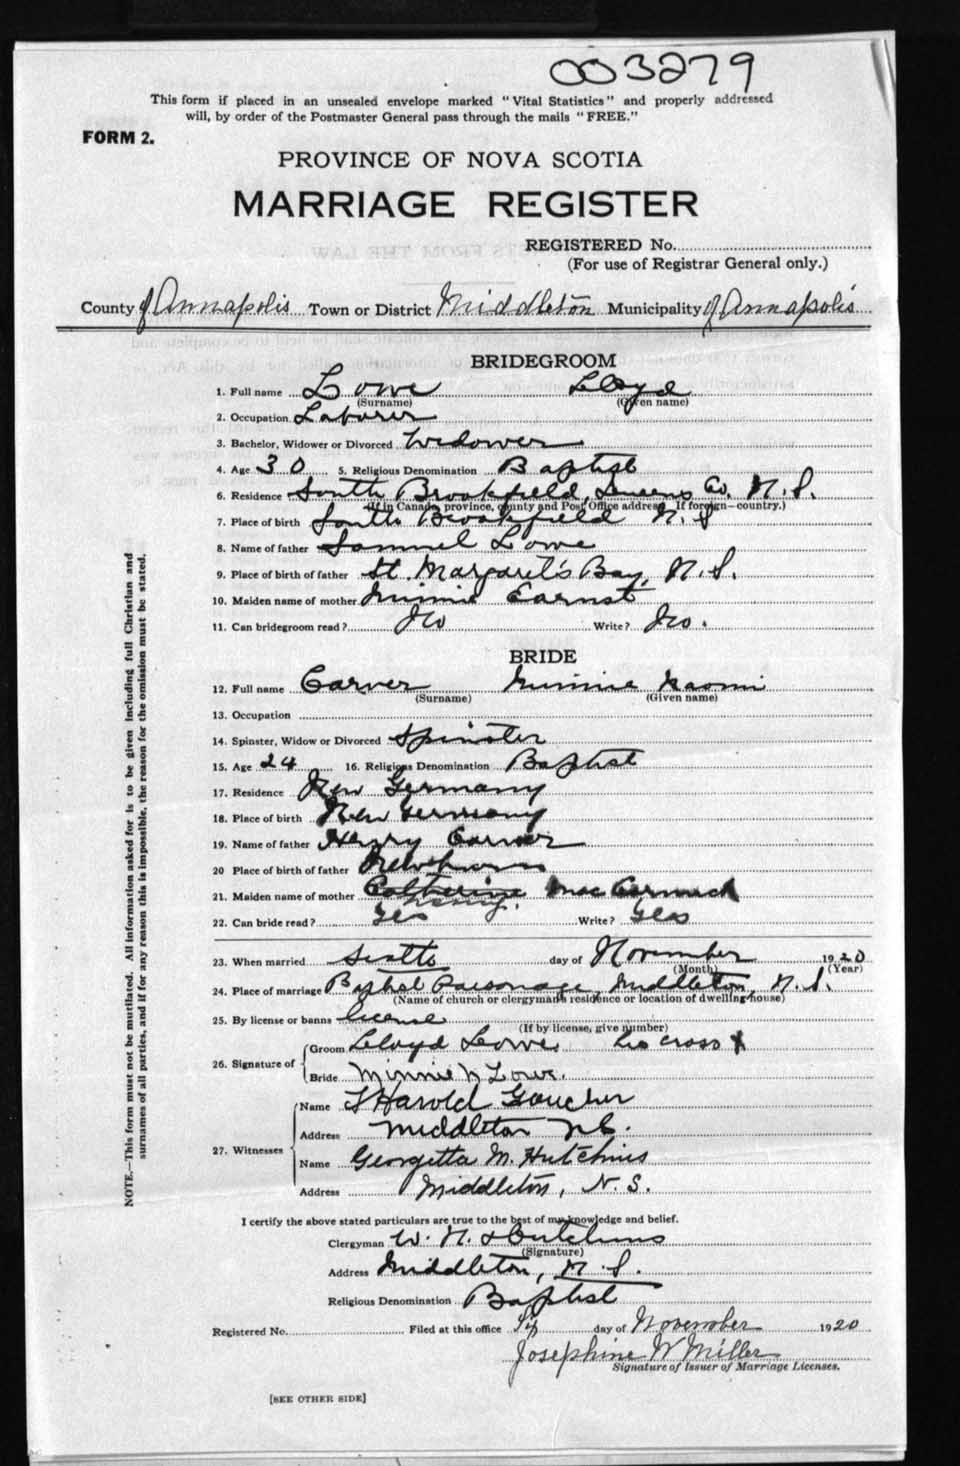 003279
This form if placed in an unsealed envelope marked "Vital Statistics" and properly addressed
will, by order of the Postmaster General pass through the mails "FREE."
FORM 2.
PROVINCE OF NOVA SCOTIA
MARRIAGE REGISTER
REGISTERED No.
(For use of Registrar General only.)
County of Annapolis Town or District Middleton Municipality of Annapolis
BRIDEGROOM
1. Full name Lowe Lloyd
(Surname) (Given name)
2. Occupation Laborer
3. Bachelor, Widower or Divorced Widower
4. Age 30 5. Religious Denomination Baptist
6. Residence South Brookfield, Queens Co. N.S.
(If in Canada, province, county and Post Office address. If foreign—country.)
7. Place of birth South Brookfield N.S
8. Name of father Samuel Lowe
9. Place of birth of father St. Margaret's Bay, N.S.
10. Maiden name of mother Minnie Earnst
11. Can bridegroom read? No Write? No.
BRIDE
12. Full name Carver Minnie Naomi
(Surname) (Given name)
13. Occupation
14. Spinster, Widow or Divorced Spinster
15. Age 24 16. Religious Denomination Baptist
17. Residence New Germany
18. Place of birth New Germany
19. Name of father Henry Carver
20 Place of birth of father
21. Maiden name of mother Catherine MacCormick
22. Can bride read? Yes Write? Yes
23. When married Sixth day of November 1920
(Month) (Year)
24. Place of marriage Baptist Parsonage, Middleton, N.S.
(Name of church or clergyman's residence or location of dwelling-house)
25. By license or banns license
(If by license, give number)
26. Signature of Groom Lloyd Lowe his cross X
Bride Minnie N Lowe.
27. Witnesses Name Harold Goucher
Address Middleton N.S.
Name Georgetta M. Hutchins
Address Middleton, N.S.
I certify the above stated particulars are true to the best of my knowledge and belief.
Clergyman W. N. Hutchins
(Signature)
Address Middleton, N.S.
Religious Denomination Baptist
Registered No. Filed at this office day of November 1920
Josephine W Miller
Signature of Issuer of Marriage Licenses.
[SEE OTHER SIDE]
NOTE.—This form must not be mutilated. All information asked for is to be given including full Christian and
surnames of all parties, and if for any reason this is impossible, the reason for the omission must be stated.